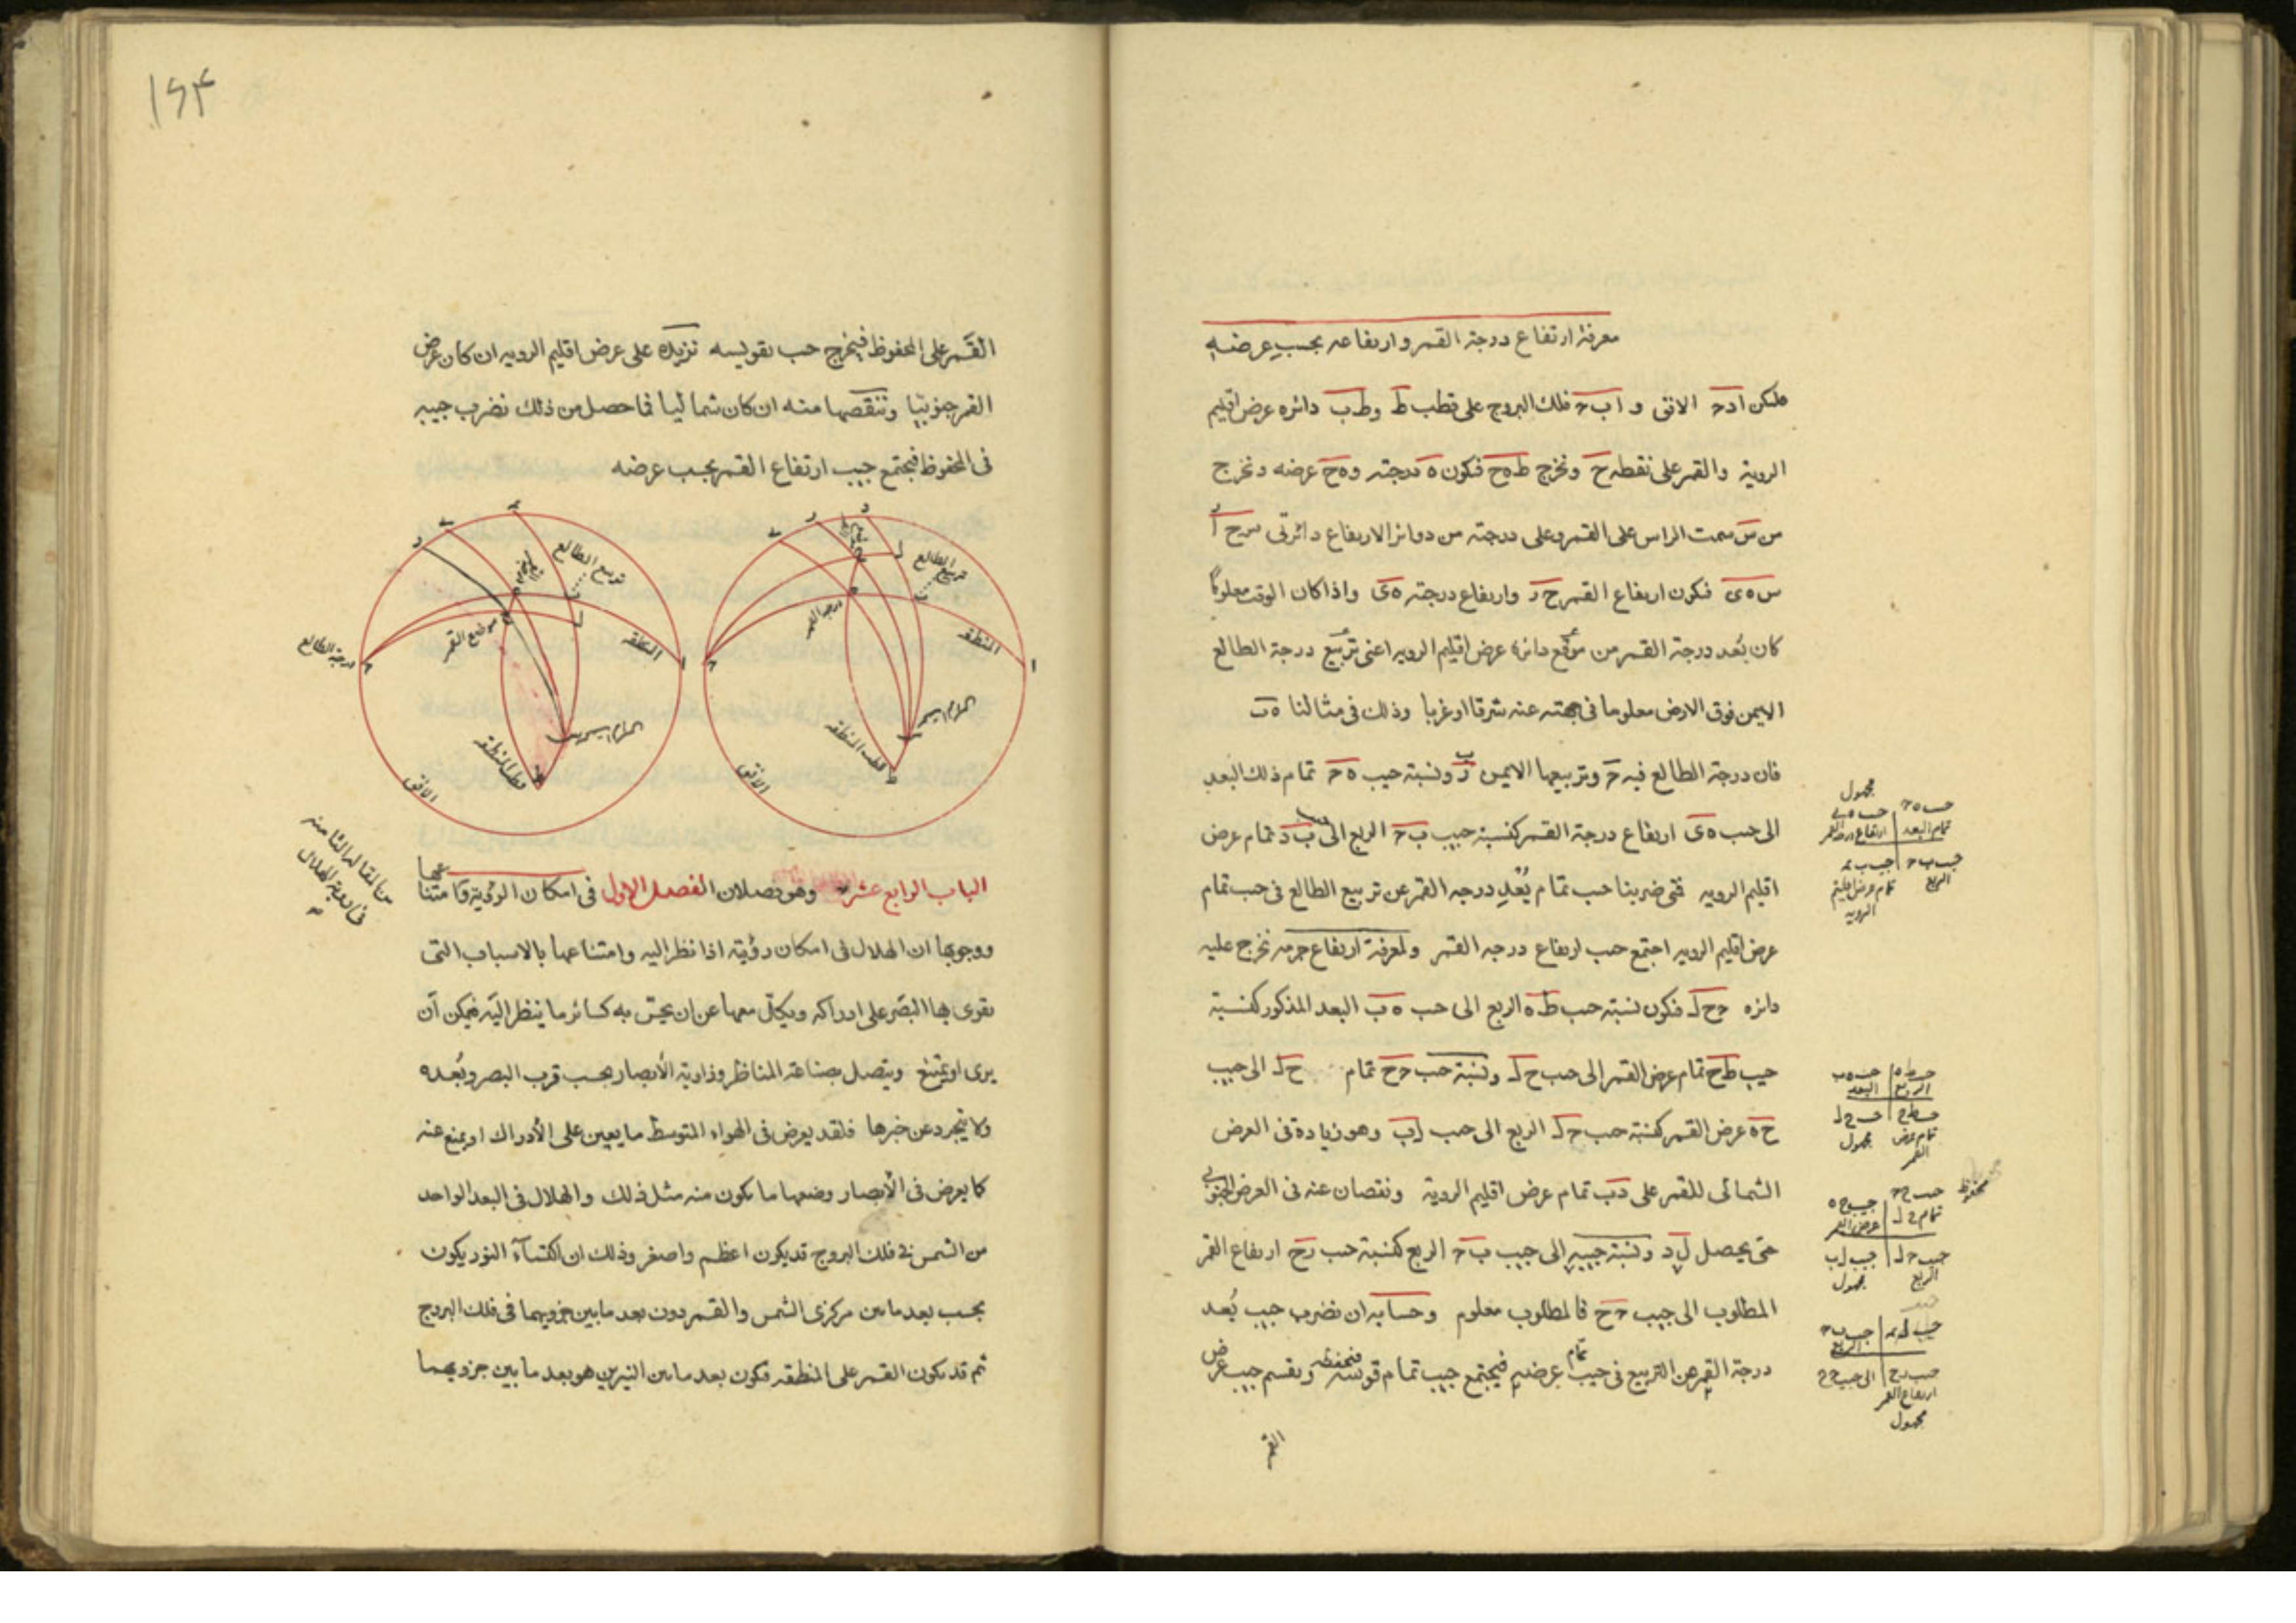 معرفة ارتفاع درجة القمر وارتفاعه بحسب عرضه
فليكن ا د ح الافق و ا ب ح فلك البروج على قطب ط و ط ب دائرة عرض اقليم
الروية والقمر على نقطه ح ونخرج ط ه ح فيكون ه درجته و ه ح عرضه ونخرج
من س سمت الراس على القمر وعلى درجته من دوائر الارتفاع دائرتى س ح ر
س ه ى فيكون ارتفاع القمر ح ر وارتفاع درجته ه ى واذا كان الوقت معلوما
كان بُعد درجة القمر من موقع دائرة عرض اقليم الرويه اعنى تربيع درجة الطالع
الايمن فوق الارض معلوما فى جهته عنه شرقا او غربا وذلك فى مثالنا ه ب
فان درجة الطالع فيه ح وتربيعها الايمن ب ونسبة جيب ه ح تمام ذلك البعد
الى جيب ه ى ارتفاع درجة القمر كنسبة جيب ب ح الربع الى جيب ب د تمام عرض
اقليم الرويه فمتى ضربنا جيب تمام بُعد درجه القمر عن تربيع الطالع فى جيب تمام
عرض اقليم الرويه اجتمع جيب ارتفاع درجه القمر ولمعرفة ارتفاع جرمه نخرج عليه
دائرة ح ح ل فيكون نسبة جيب ط ه الربع الى جيب ه ب البعد المذكور كنسبة
جيب ط ح تمام عرض القمر الى جيب ح ل ونسبة جيب ح ح تمام ح ل الى جيب
ح ه عرض القمر كنسبة جيب ح ل الربع الى جيب ل ب وهو زيادة فى العرض
الشمالى للقمر على د ب تمام عرض اقليم الروية ونقصان عنه فى العرض الجنوبى
حتى يحصل ل د ونسبة جيبه الى جيب ب ح الربع كنسبة جيب ر ح ارتفاع القمر
المطلوب الى جيب ح ح فالمطلوب معلوم وحسابه ان نضرب جيب بُعد
درجة القمر عن التربيع فى جيب تمام عرضه فيجتمع جيب تمام قوسه فنحفظه ونقسم جيب عرض
القمر
مجهول
تمام البعد
ارتفاع درجة القمر
الربع
تمام عرض اقليم الرويه
الربع
البعد
تمام عرض القمر
مجهول
محفوظ
عرض القمر
الربع
مجهول
الربع
ارتفاع القمر
مجهول
١٦٤
القمر على المحفوظ فيخرج جيب نقوسه نزيده على عرض اقليم الرويه ان كان عرض
القمر جنوبيا وننقصها منه ان كان شماليا فما حصل من ذلك نضرب جيبه
فى المحفوظ فيجتمع جيب ارتفاع القمر بحسب عرضه
تربيع الطالع
المنطقه
درجة القمر
قطب المنطقه
الافق
تربيع الطالع
المنطقه
موضع القمر
درجة الطالع
قطب المنطقه
الافق
من المقاله الثامنه
فى روية الهلال
الباب الرابع عشر وهو فصلان الفصل الاول فى امكان الرؤية وامتناعها
ووجوبها ان الهلال فى امكان رؤيته اذا نظر اليه وامتناعها بالاسباب التى
يقوى بها البصر على ادراكه ويكلّ معها عن ان يحسّ به كسائر ما ينظر اليه فيمكن ان
يرى او يمتنع ويتصل بصناعة المناظر وزاوية الأبصار بحسب قرب البصر وبُعده
ولا يتجرد عن خبرها فلقد يعرض فى الهواء المتوسط ما يعين على الأدراك او يمنع عنه
كما يعرض فى الأبصار وضعها ما يكون منه مثل ذلك والهلال فى البعد الواحد
من الشمس فى فلك البروج قد يكون اعظم واصغر وذلك ان اكتساء النور يكون
بحسب بعد ما بين مركزى الشمس والقمر دون بعد ما بين جزويهما فى فلك البروج
ثم قد يكون القمر على المنطقه فيكون بعد ما بين النيرين هو بعد ما بين جزويهما